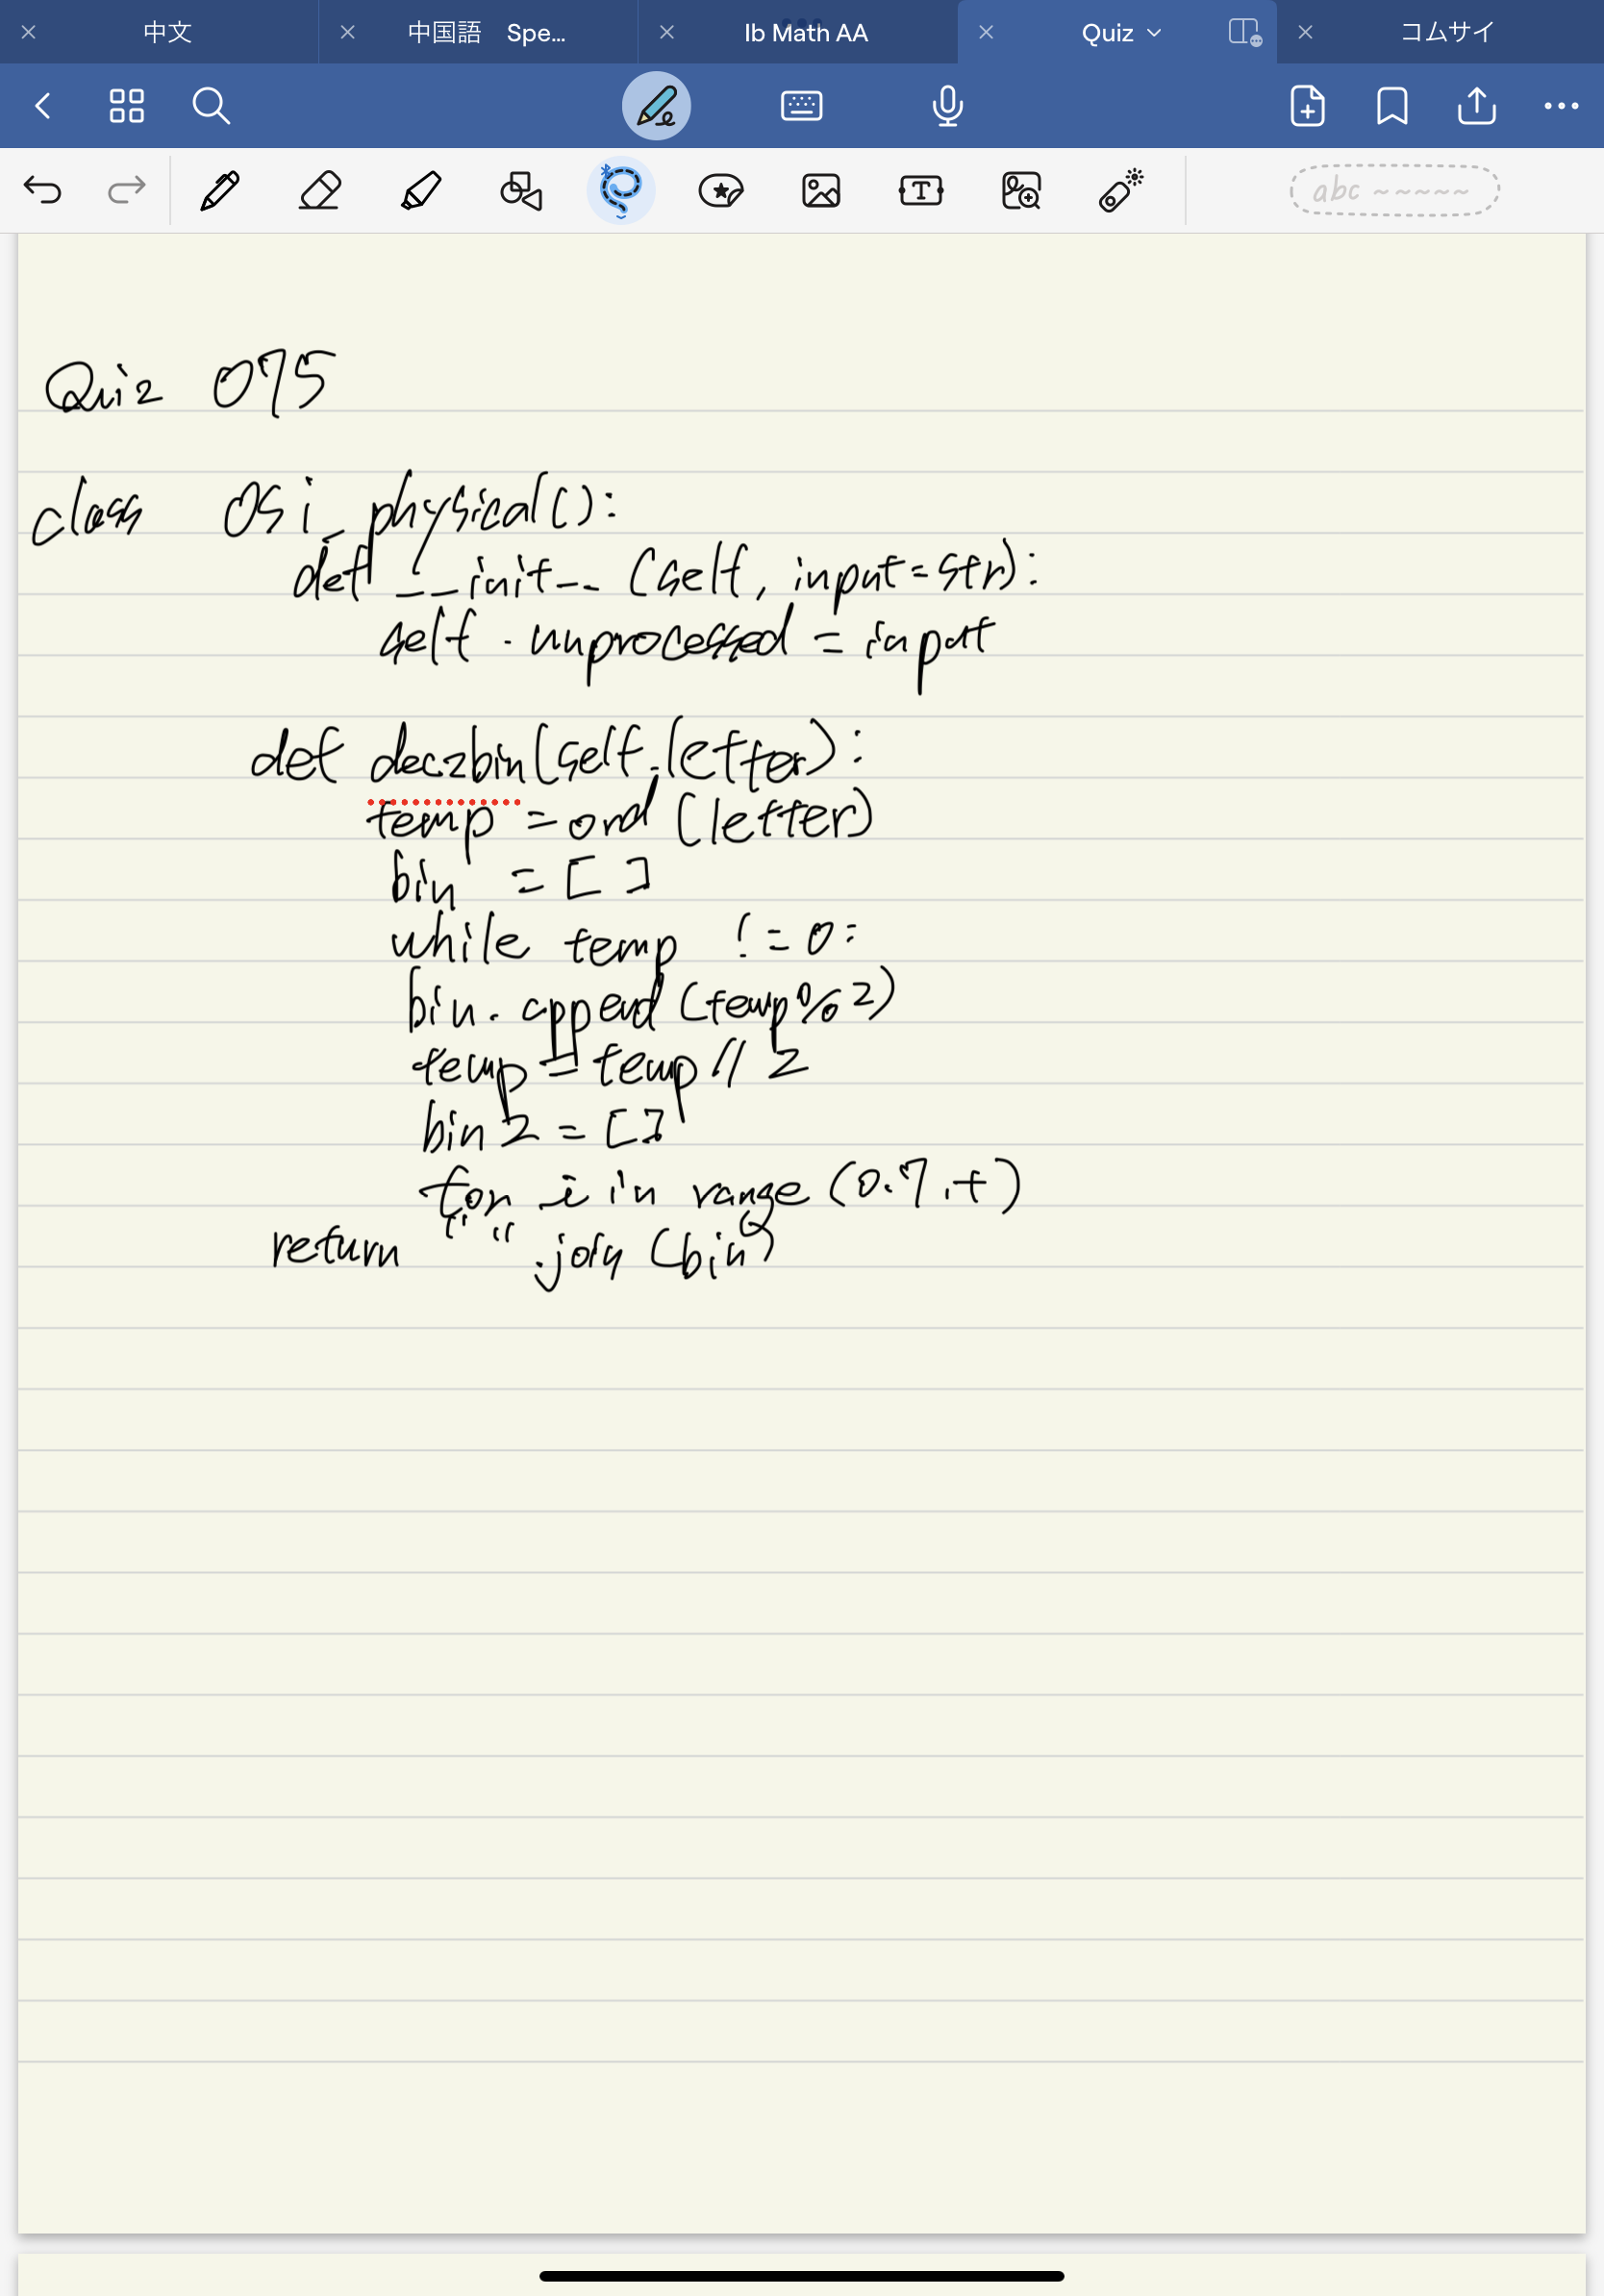 中文
中国語 Spe...
Ib Math AA
Quiz
コムサイ
abc
Quiz 075
class OSi_physical():
def __init__ (self, input=str):
self.unprocessed = input
def dec2bin(self.letter):
temp = ord (letter)
bin = []
while temp != 0:
bin.append (temp%2)
temp = temp // 2
bin2 = []
for i in range (0.7.+)
return "".join (bin2)